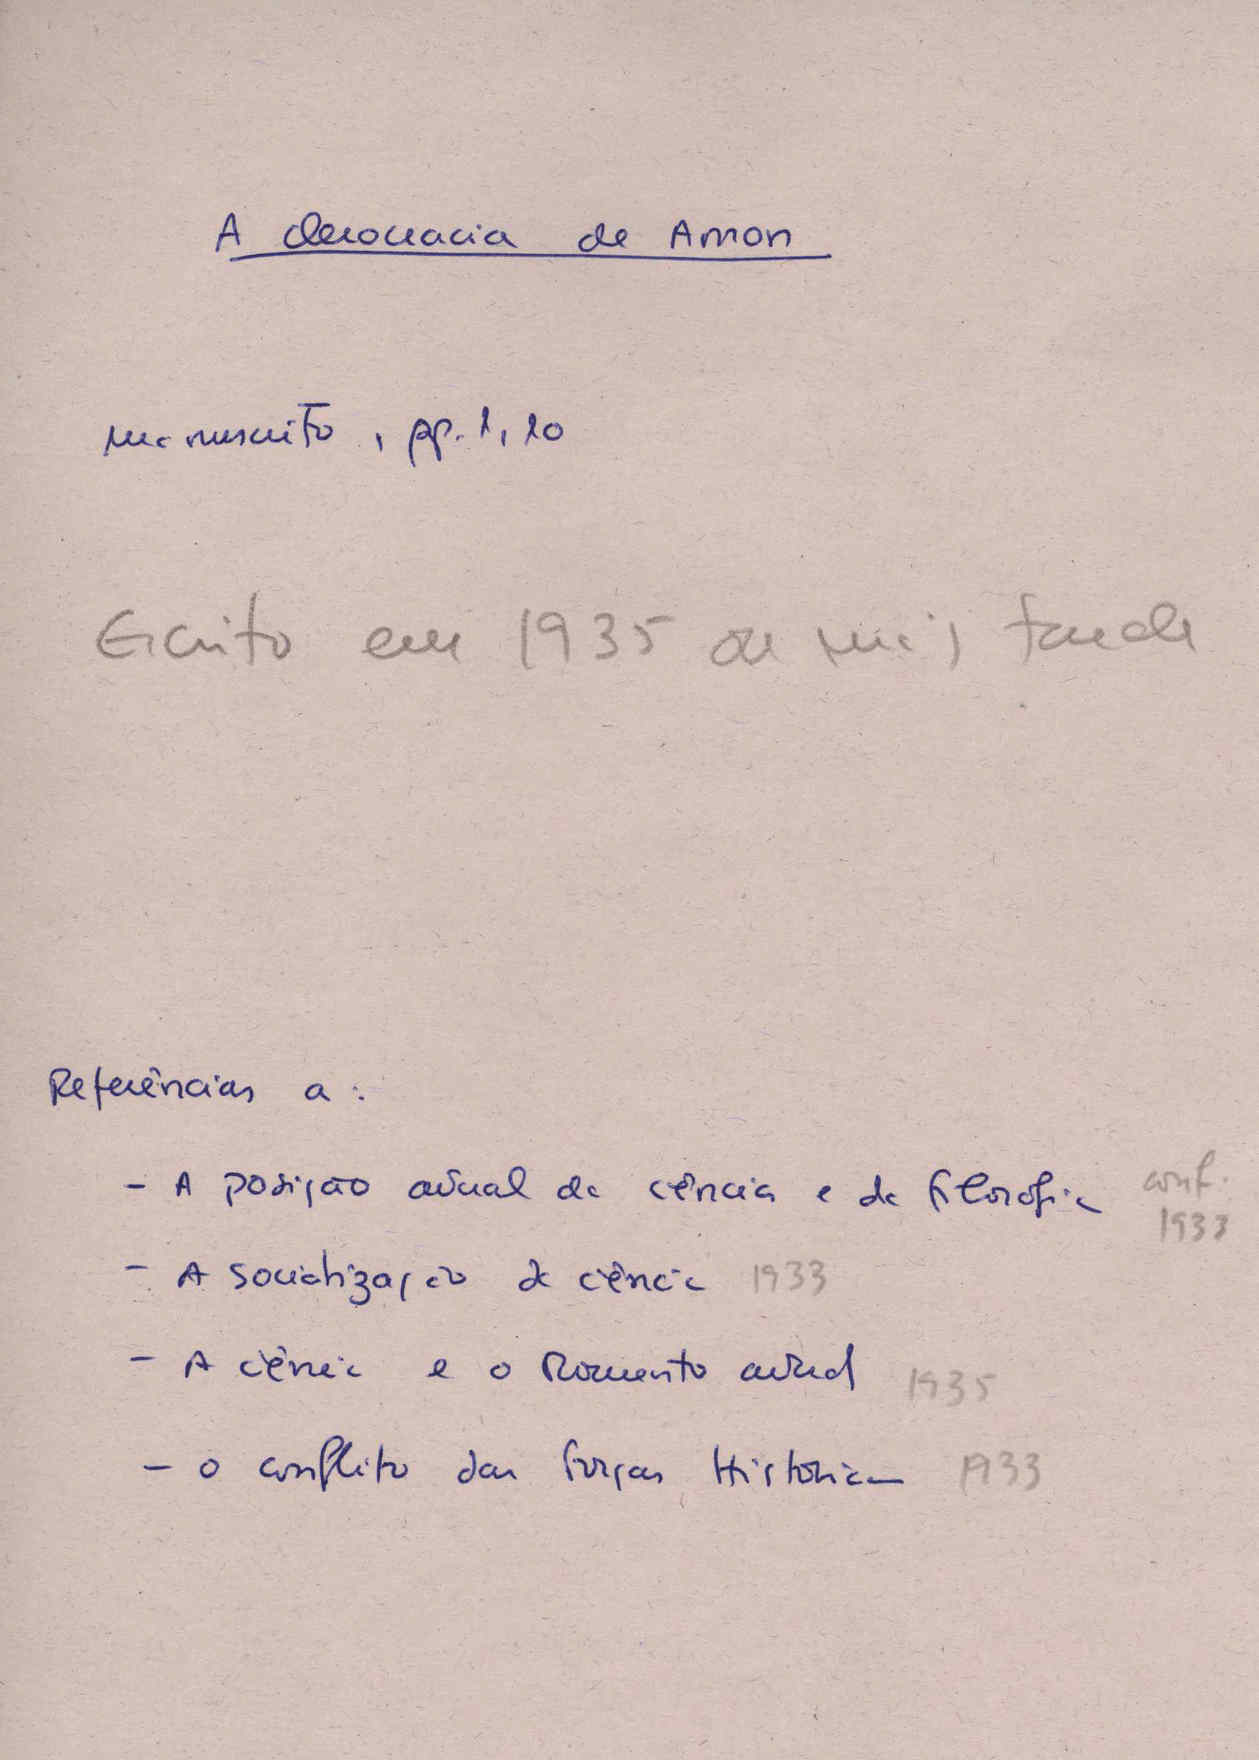 A democracia de Amon
manuscrito, pp. 1, 20
Escrito em 1935 ou mais tarde
Referências a:
- A posição actual da ciência e da filosofia conf. 1933
- A socialização da ciência 1933
- A ciência e o Momento actual 1935
- o conflito das forças Históricas 1933